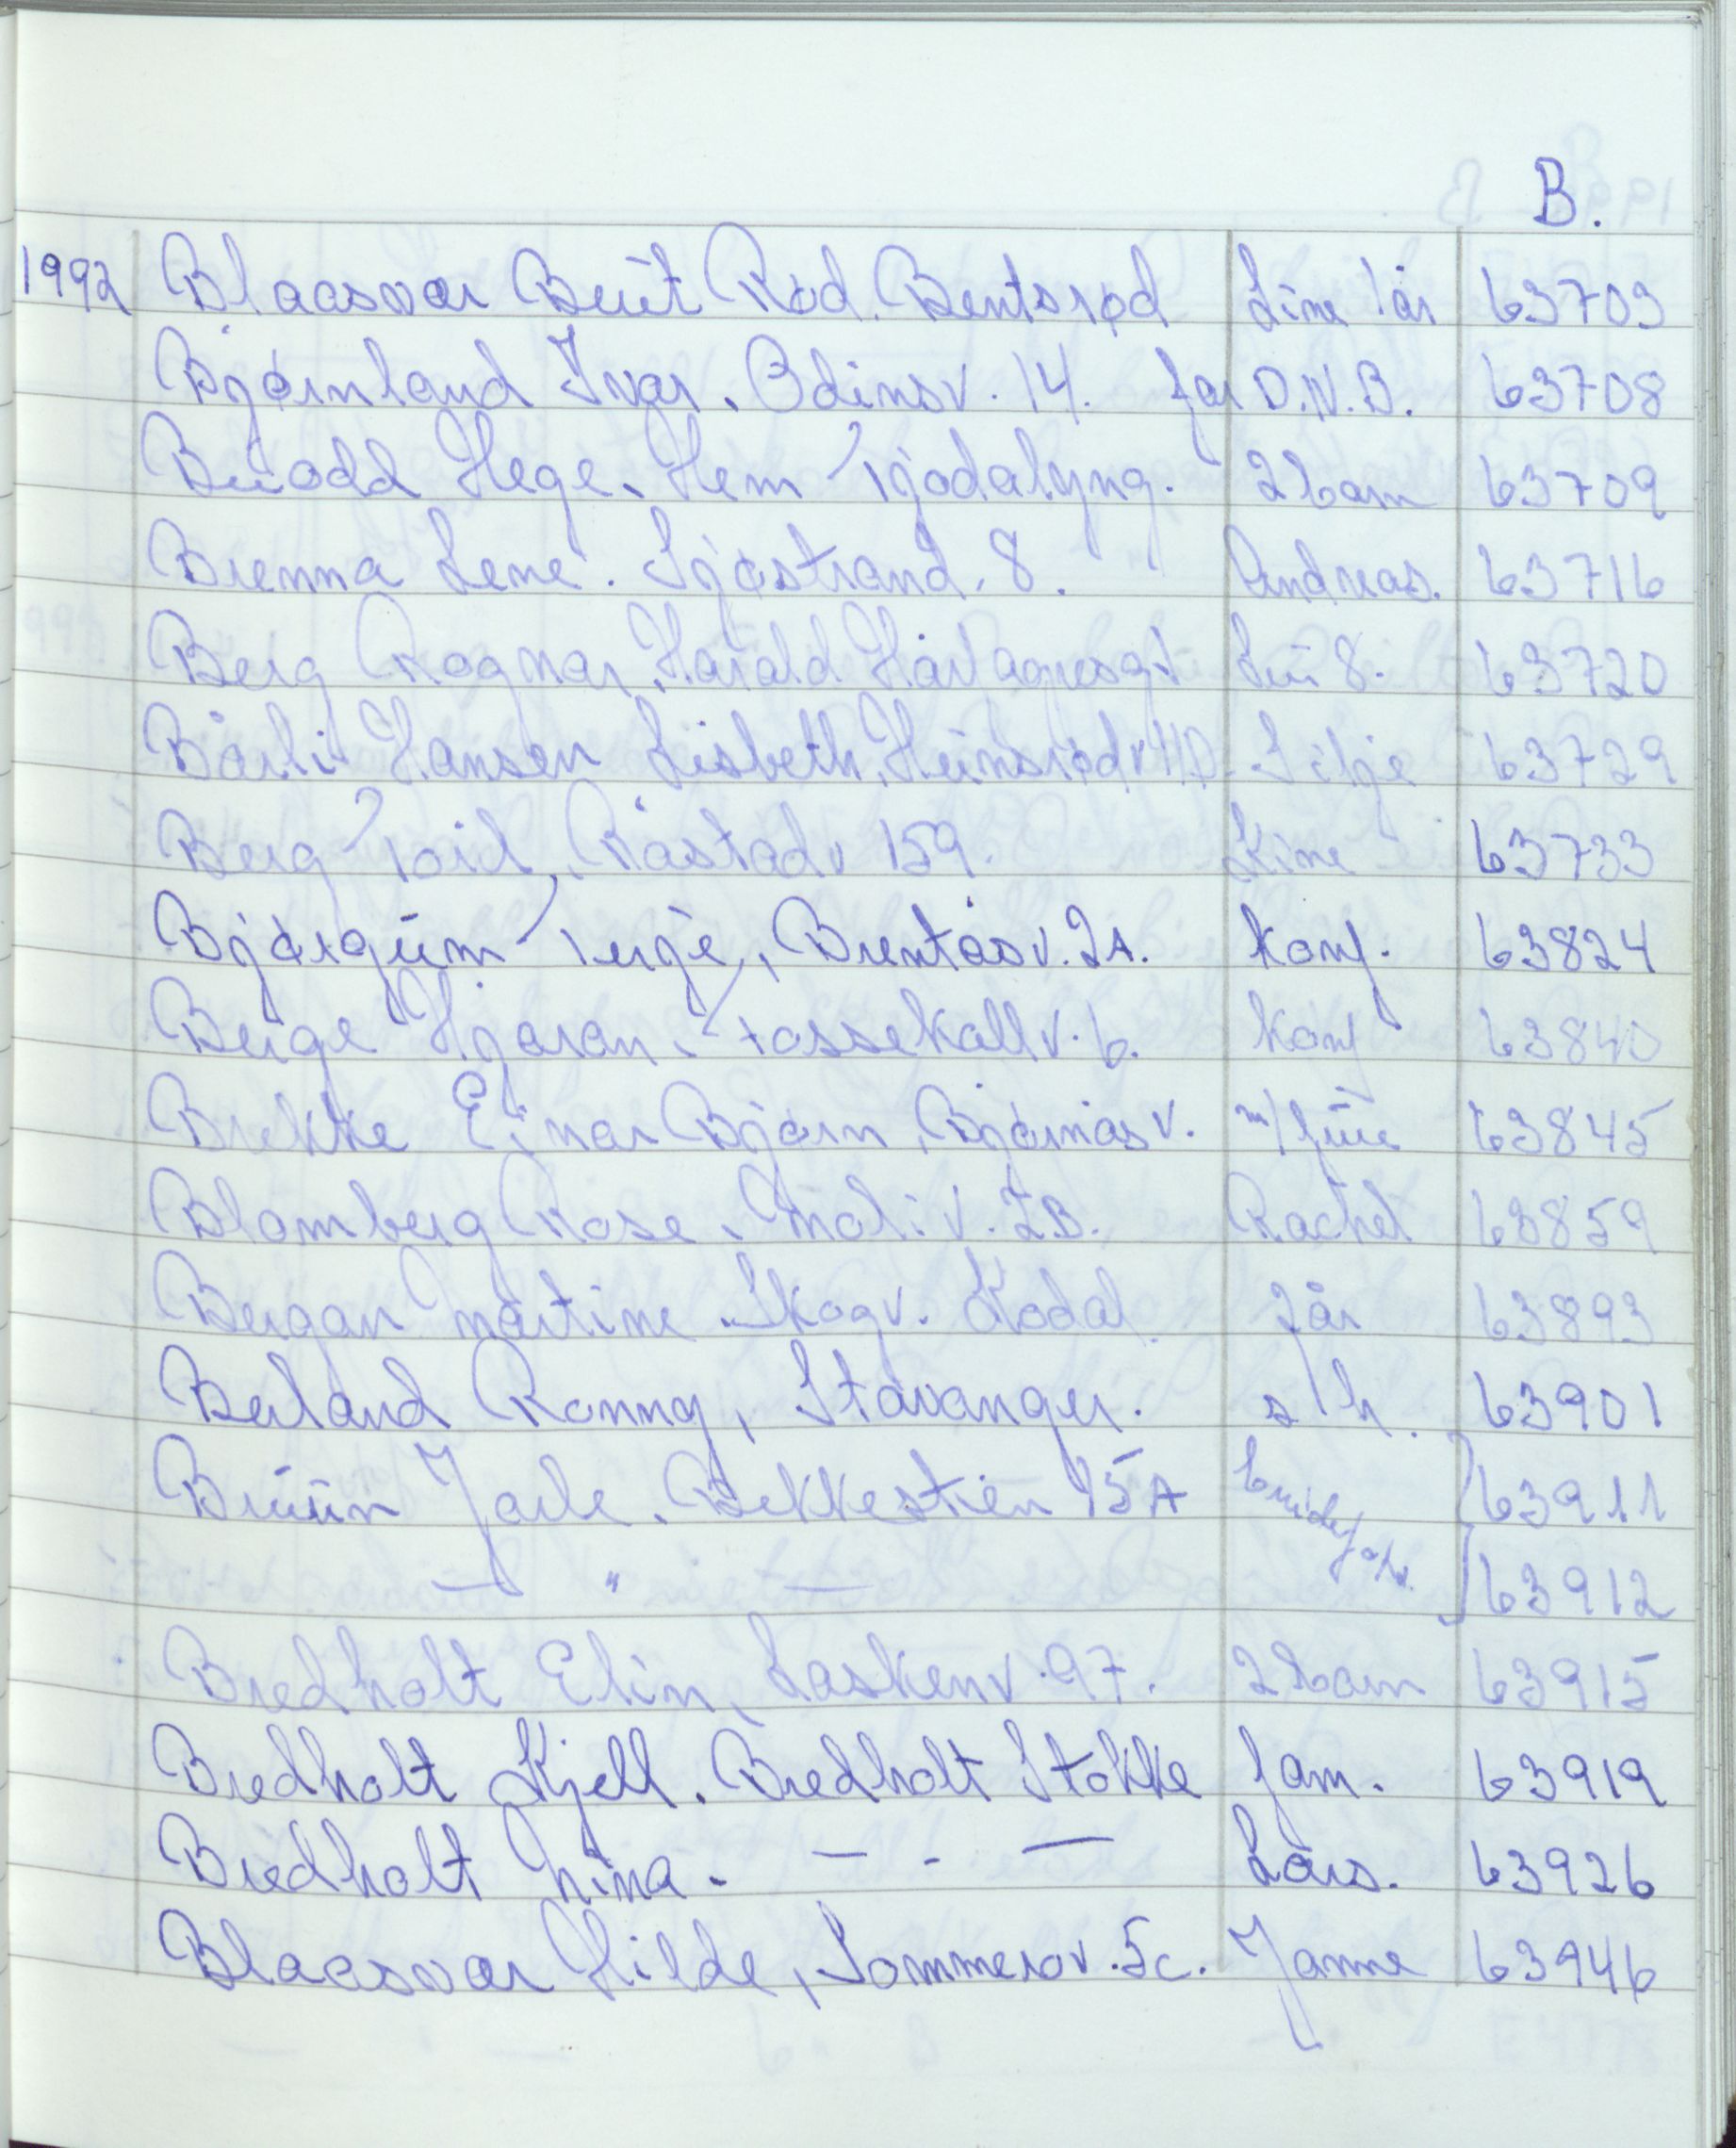 B.
1992 Blaasvær Berit Rød. Bentsrød Line 1 år 63703
Bjørnland Ivar. Odinsv. 14. for D.N.B. 63708
Buodd Hege. Hem Tjodalyng. 2 barn 63709
Brenna Lene. Sjøstrand. 8. Andreas. 63716
Berg Ragnar, Harald Hårfagresgt 8. 63720
Bårli Hansen Lisbeth, Heimsrødv 11D. Silje 63729
Berg Toril, Råstadv 159. Kine 63733
Bjørgum Terje, Brentåsv. 2A. konf. 63824
Berge Hjøran. Fossekallv. 6. konf 63840
Brekke Einar Bjørn, Bjørnåsv. m/frue 63845
Blomberg Rose. Moliv. 2B. Rachel 63859
Bergan Martine. Skogv. Kodal. 2 år 63893
Berland Ronny, Stavanger. s/h. 63901
Bruun Jarle. Bekkestien 15A brudef 63911
— " — 63912
Bredholt Elin, Laskenv. 97. 2 barn 63915
Bredholt Kjell. Bredholt Stokke fam. 63919
Bredholt Nina. — . — Lars. 63926
Blaasvær Hilde, Sommerov. 5c. Janne 63946